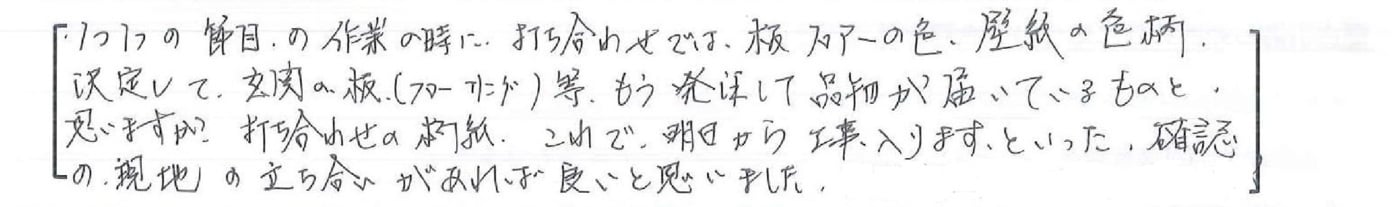 ・1つ1つの節目.の作業の時に.打ち合わせでは、板フロアーの色、壁紙の色柄.
決定して.玄関の板.(フローリング)等.もう発注して品物が届いているものと.
思いますが?打ち合わせの 紙.これで.明日から工事、入ります、といった.確認
の.現地の立ち合いがあれば良いと思いました.